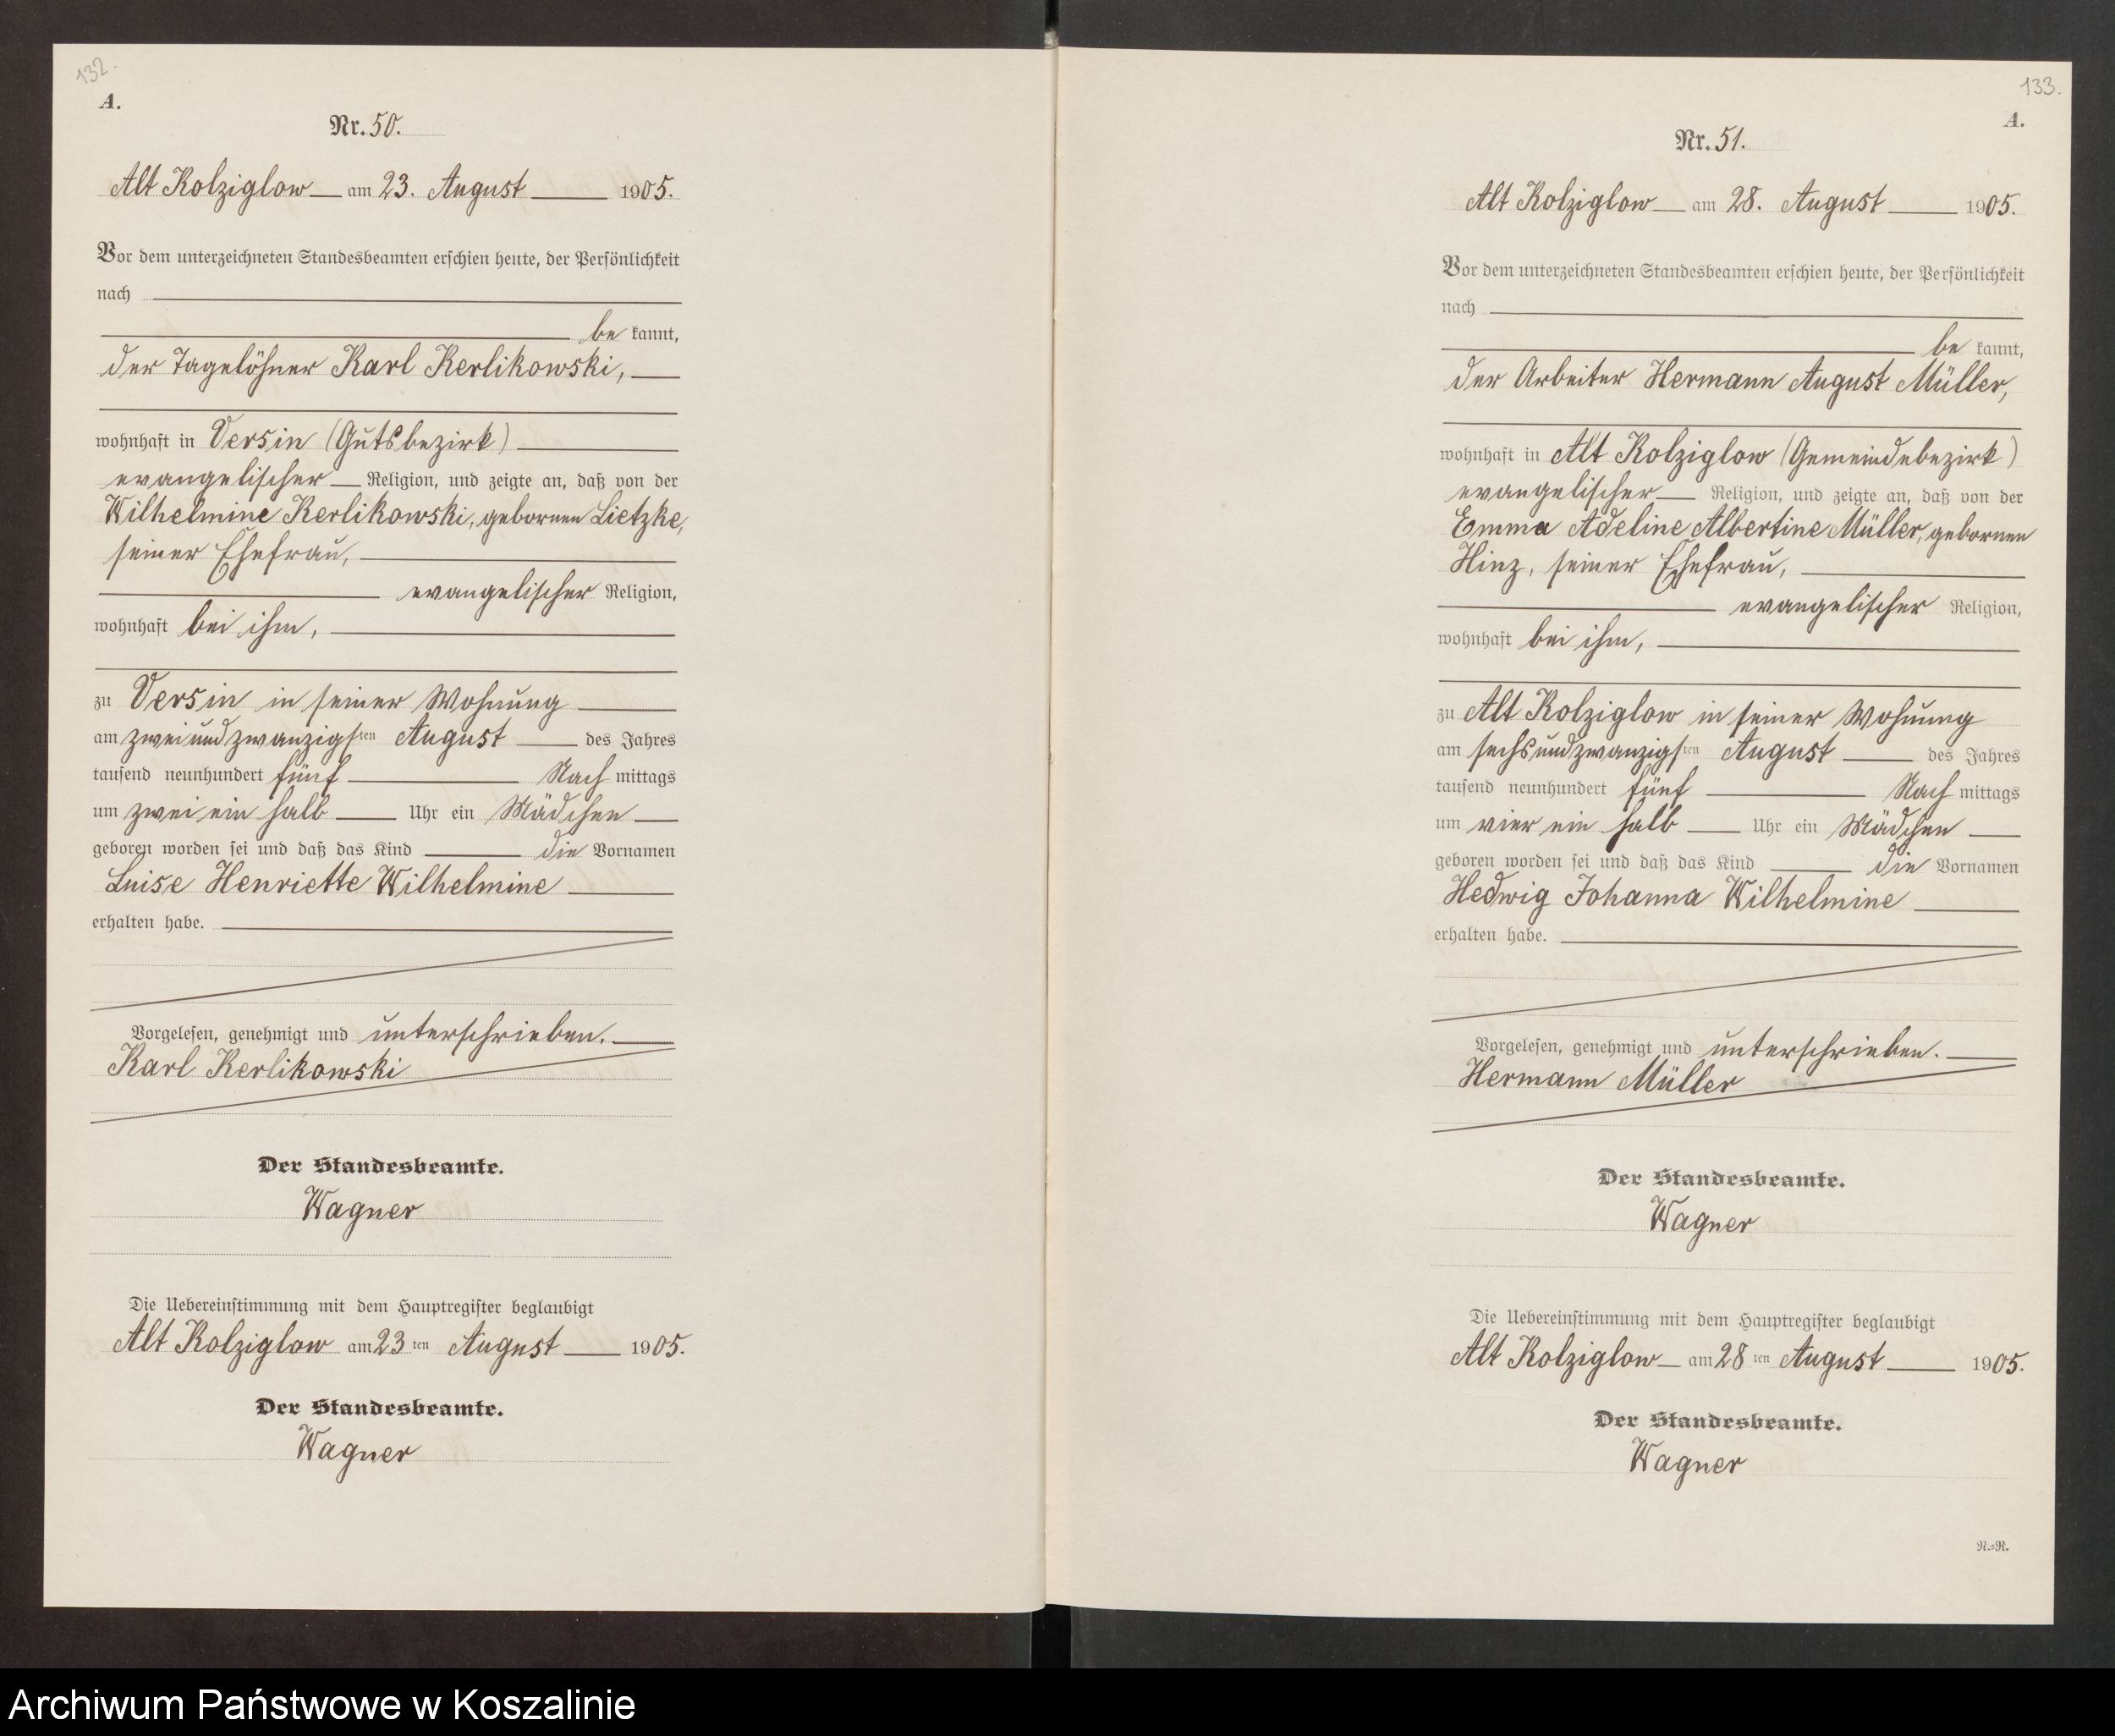 132.
A.
Nr. 50.
Alt Kolziglow am 23. August 1905.
Vor dem unterzeichneten Standesbeamten erschien heute, der Persönlichkeit
nach
be kannt,
der Tagelöhner Karl Kerlikowski,
wohnhaft in Versin (Gutsbezirk)
evangelischer Religion, und zeigte an, daß von der
Wilhelmine Kerlikowski, gebornen Lietzke,
seiner Ehefrau,
evangelischer Religion,
wohnhaft bei ihm,
zu Versin in seiner Wohnung
am zwei und zwanzigsten August des Jahres
tausend neunhundert fünf Nach mittags
um zwei ein halb Uhr ein Mädchen
geboren worden sei und daß das Kind die Vornamen
Luise Henriette Wilhelmine
erhalten habe.
Vorgelesen, genehmigt und unterschrieben.
Karl Kerlikowski
Der Standesbeamte.
Wagner
Die Uebereinstimmung mit dem Hauptregister beglaubigt
Alt Kolziglow am 23 ten August 1905.
Der Standesbeamte.
Wagner
133.
A.
Nr. 51.
Alt Kolziglow am 28. August 1905.
Vor dem unterzeichneten Standesbeamten erschien heute, der Persönlichkeit
nach
be kannt,
der Arbeiter Hermann August Müller,
wohnhaft in Alt Kolziglow (Gemeindebezirk)
evangelischer Religion, und zeigte an, daß von der
Emma Adeline Albertine Müller, gebornen
Hinz, seiner Ehefrau,
evangelischer Religion,
wohnhaft bei ihm,
zu Alt Kolziglow in seiner Wohnung
am sechs und zwanzigsten August des Jahres
tausend neunhundert fünf Nach mittags
um vier ein halb Uhr ein Mädchen
geboren worden sei und daß das Kind die Vornamen
Hedwig Johanna Wilhelmine
erhalten habe.
Vorgelesen, genehmigt und unterschrieben.
Hermann Müller
Der Standesbeamte.
Wagner
Die Uebereinstimmung mit dem Hauptregister beglaubigt
Alt Kolziglow am 28 ten August 1905.
Der Standesbeamte.
Wagner
N.=R.
Archiwum Państwowe w Koszalinie